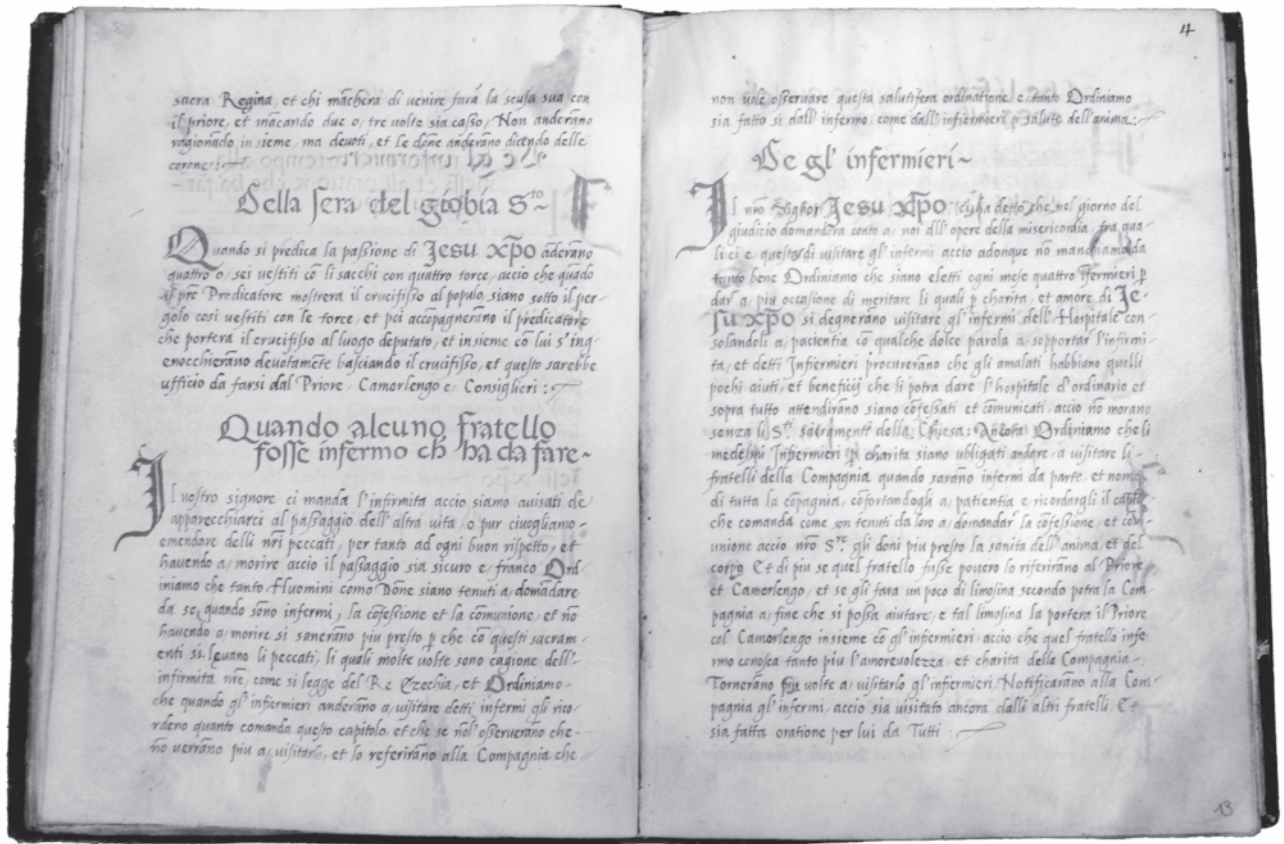 sacra Regina, et chi mãcherà di venire farà la scusa sua con
il priore, et mãcando due o, tre uolte sia casso, Non anderano
ragionãdo insieme, ma deuoti, et le dõne anderano dicẽdo delle
corone:
Della sera del giobia S.to
Quando si predica la passione di Jesu xp̄o ãderano
quattro o, sei uestiti cõ li sacchi con quattro torce, accio che quãdo
il pre Predicatore mostrera il crucifisso al populo siano sotto il per-
golo cosi uestiti con le torce, et poi accõpagnerano il predicatore
che porterà il crucifisso al luogo deputato, et insieme cõ lui s'ing
enocchierano deuotamẽte basciando il crucifisso, et questo sarebbe
ufficio da farsi dal Priore, Camorlengo e, Consiglieri:
Quando alcuno fratello
fosse infermo ch ha da fare
Il nostro signore ci manda l'infirmita accio siamo auisati de
apparecchiarci al passaggio dell'altra uita, o pur ci uogliamo
emendare delli nr̄i peccati, per tanto ad ogni buon rispetto, et
hauendo a, morire accio il passaggio sia sicuro e, franco Ord
iniamo che tanto Huomini come Dõne siano tenuti a, domãdare
da se, quando sono infermi, la cõfessione et la comunione, et nõ
hauendo a, morire si sanerano piu presto p̱ che cõ questi sacram
enti si leuano li peccati, li quali molte uolte sono cagione dell'
infirmità nr̄e, come si legge del Re Ezechia, et Ordiniamo
che quando gl'infiermieri anderano a, uisitare detti infermi gli rico
rdeno quanto comanda questo capitolo, et che se nõl'osseruerano che
nõ uerrano piu a, uisitarlo, et lo referirano alla Compagnia che
4
non uole osseruare questa salutifera ordinatione e, tanto Ordiniamo
sia fatto si dall'infermo, come dall'infiermieri p̱ salute dell'anima:
De gl'infermieri
Il nr̄o Signor Jesu xp̄o ci ha detto che nel giorno del
giudicio domanderà conto a, noi dell'opere della misericordia, fra qua
li ci e, questo di uisitare gl'infermi accio adonque nõ manchiamo da
tanto bene Ordiniamo che siano eletti ogni mese quattro Ifermieri p̱
dar a, piu occasione di meritare li quali p̱ charita, et amore di Je-
su xp̄o si degnerano uisitare gl'infermi dell'Hospitale con
solandoli a, pacientia cõ qualche dolce parola a, sopportar l'infirmi
ta, et detti Infiermieri procurerano che gli amalati habbiano quelli
pochi aiuti, et beneficij che li potra dare l'hospitale d'ordinario et
sopra tutto attendirano siano cõfessati et comunicati, accio nõ morano
senza li S.ti sacramenti della Chiesa: Ancora Ordiniamo che li
medesmi Infiermieri p̱ charita siano ubligati andare a uisitare li
fratelli della Compagnia quando sarano infermi da parte, et nome
di tutta la cõpagnia, cõfortandogli a, patientia e, ricordargli il capto
che comanda come son tenuti da loro a, domandar la cõfessione, et com
unione accio nr̄o S.re gli doni piu presto la sanita dell'anima, et del
corpo Et di piu se quel fratello fusse pouero lo riferirano al Priore
et Camorlengo, et se gli fara un poco di limosina secondo potra la Com
pagnia a, fine che si possa aiutare, e tal limosina la portera il Priore
col Camorlengo insieme cõ gl'infermieri, accio che quel fratello infe
rmo conosca tanto piu l'amoreuolezza, et charita della Compagnia
Tornerano piu uolte a, uisitarlo gl'infermieri, Notificarano alla Com
pagnia gl'infermi, accio sia uisitato ancora dalli altri fratelli, Et
sia fatta oratione per lui da Tutti:
13